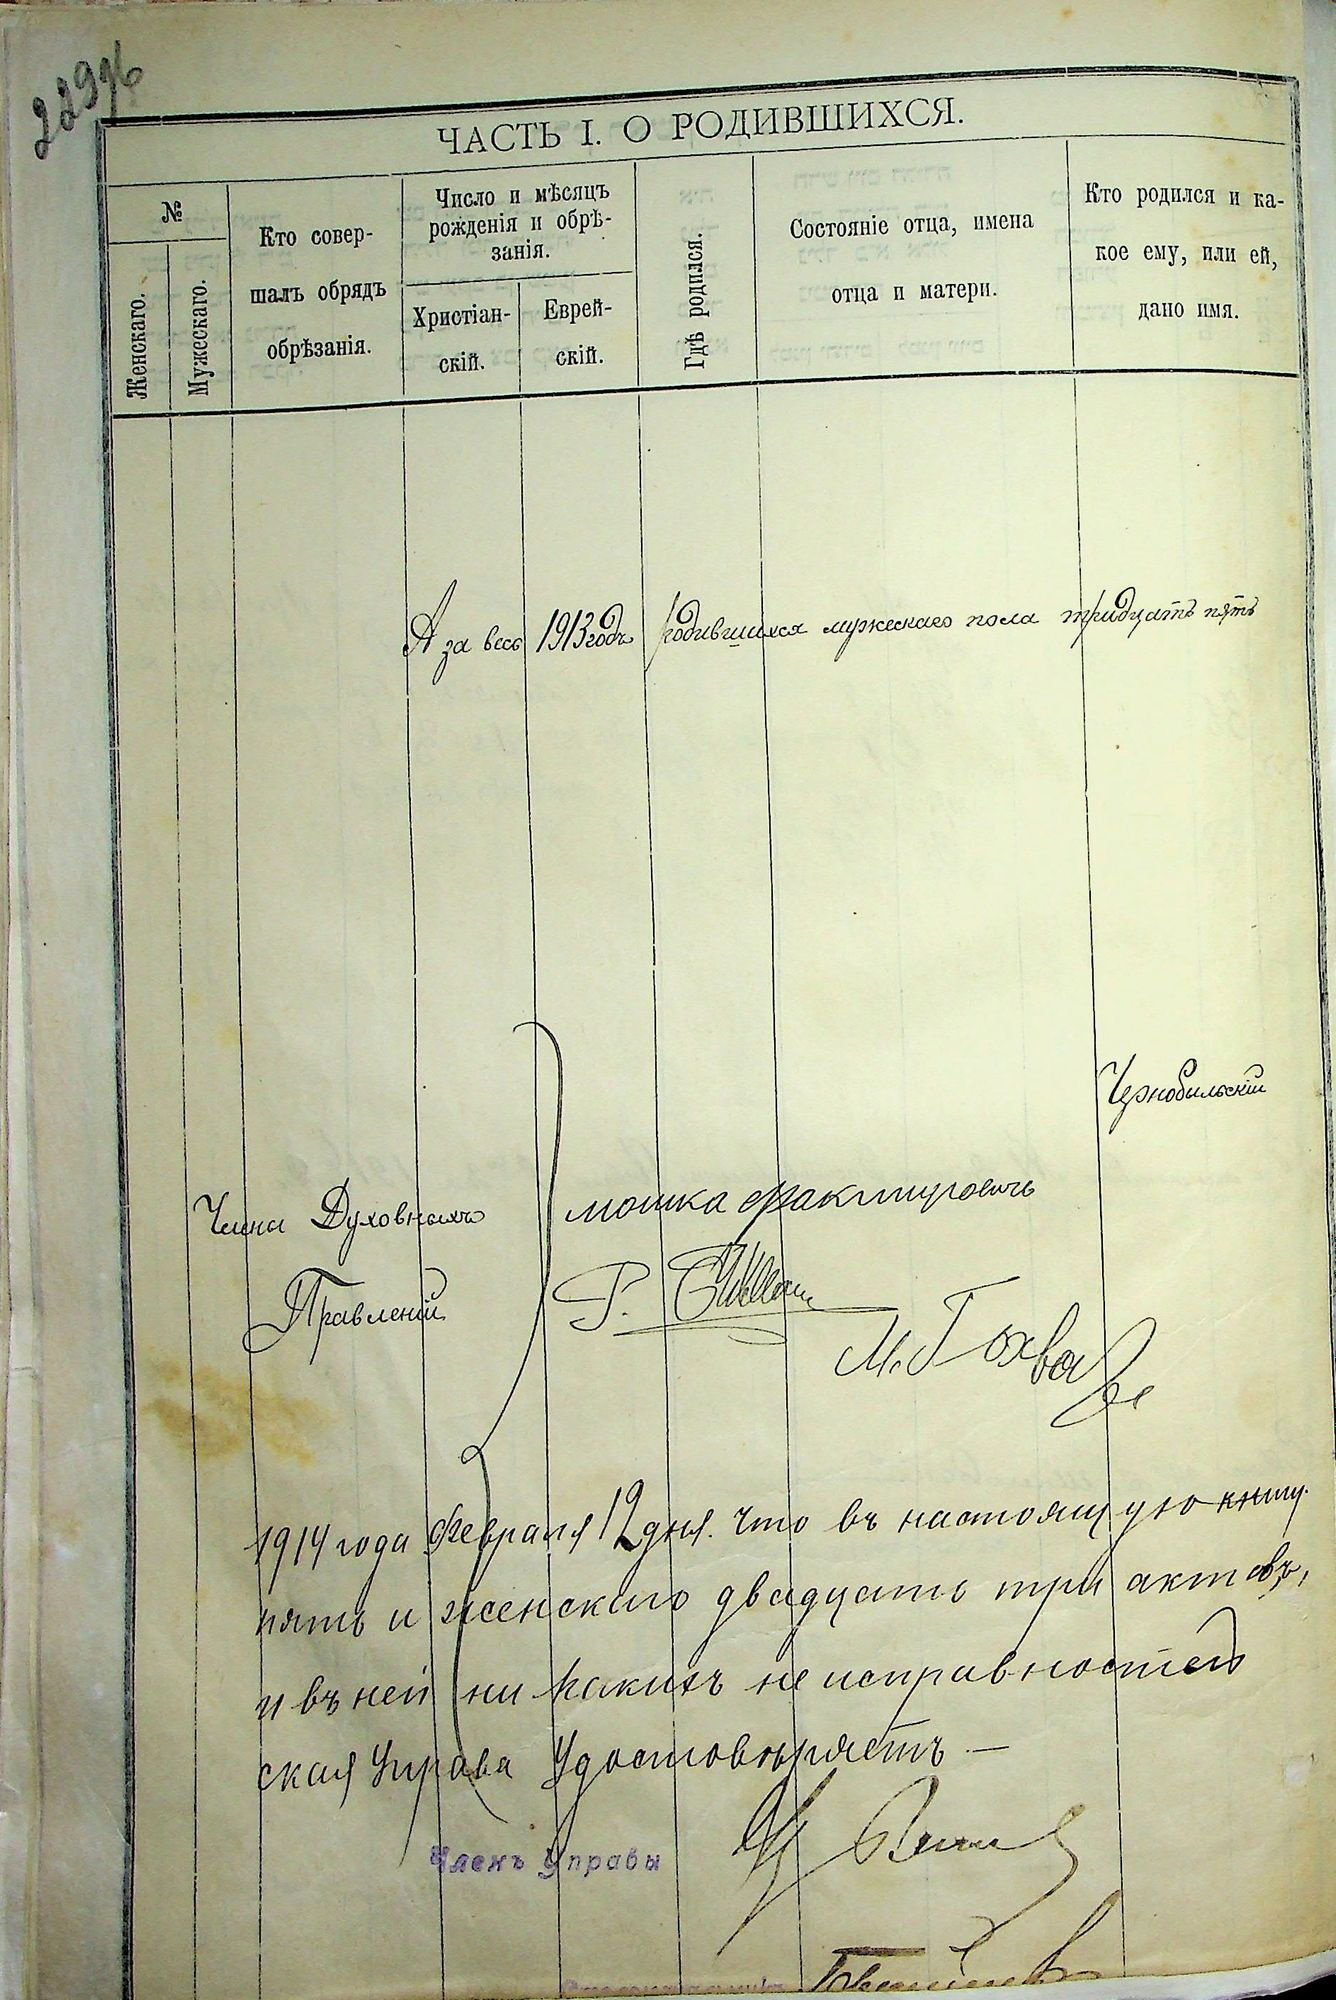 229об
ЧАСТЬ I. О РОДИВШИХСЯ.
№
Женскаго.
Мужескаго.
Кто совер-
шалъ обрядъ
обрѣзанія.
Число и мѣсяцъ
рожденія и обрѣ-
занія.
Христіан-
скій.
Еврей-
скій.
Гдѣ родился.
Состояніе отца, имена
отца и матери.
Кто родился и ка-
кое ему, или ей,
дано имя.
А за весь 1913 годъ родившихся мужескаго пола тридцать пять
Чернобильскій
Члены Духовныхъ мошка Факторовичъ
Правленій
Р.
М. Гохва
1914 года Февраля 12 дня. Что въ настоящую книгу
пять и женскаго двадцать три актовъ,
и въ ней ни какихъ не исправностей
ская Управа Удостовѣряетъ —
Членъ Управы